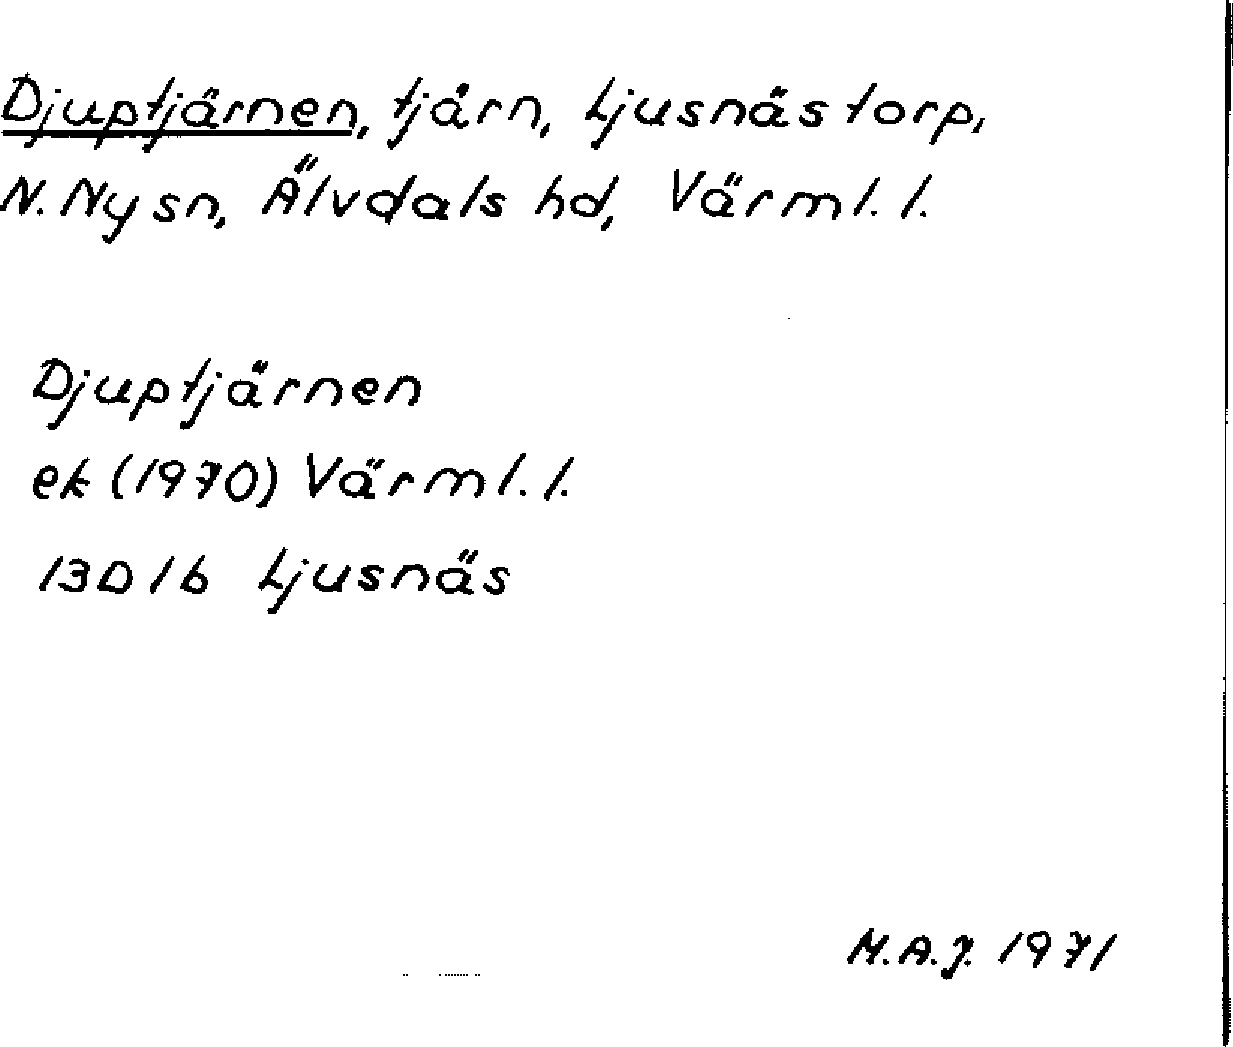 Djuptjärnen, tjärn, Ljusnästorp,
N. Ny sn, Älvdals hd, Värml. l.
Djuptjärnen
ek (1970) Värml. l.
13D 1b Ljusnäs
M.A.J. 1971